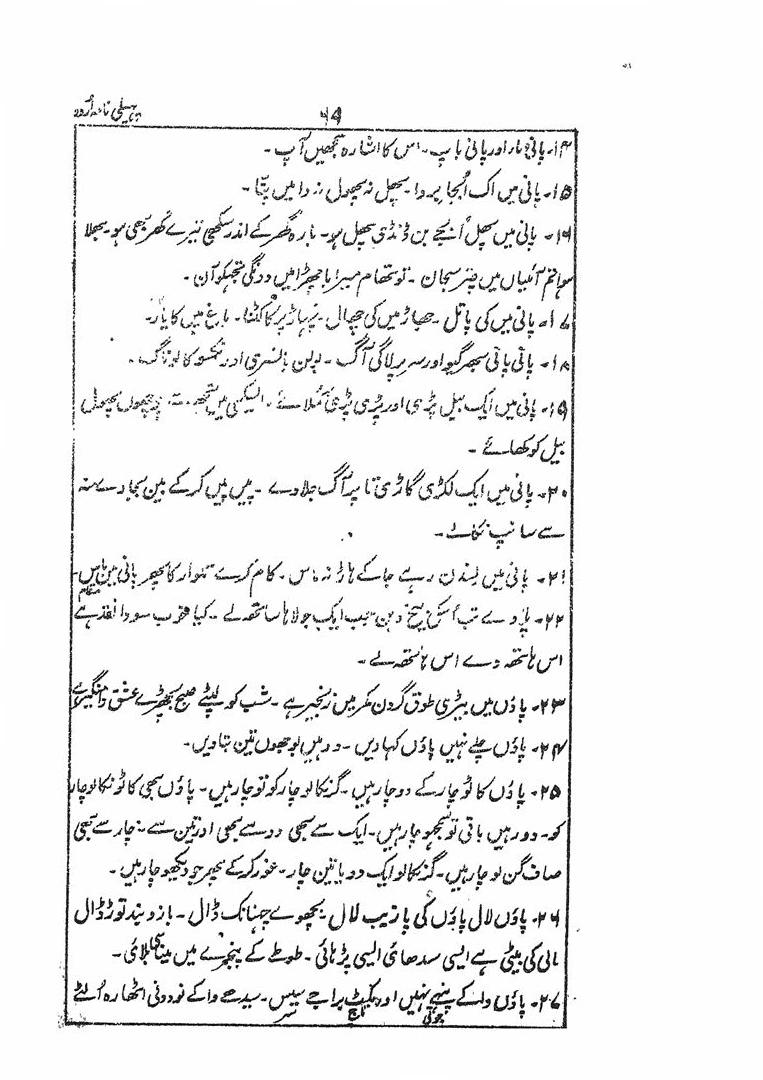 پہیلی نامہ اُردو
۶۴
۱۴۔ پانی نار اور پانی باپ۔ اس کا اشارہ سمجھیں آپ۔
۱۵۔ پانی میں اک اُبجا بروا۔ پھل نہ پھول نہ وا میں پتّا۔
۱۶۔ پانی میں پھل اُپجے بن ڈنڈی پھل ہو۔ بارہ گھر کے اندر سکھی تیرے گھر بھی ہو۔ بھلا
ہوا تم آئیاں میں چتر سجان۔ تو تھام میرا باچھڑا میں دونگی تجھکو آن۔
۱۷۔ پانی میں کی پاتل۔ جھاڑ میں کی چھال۔ پہاڑ پر کا کٹنا۔ باغ میں کا یار۔
۱۸۔ پانی پانی بھر گیو اور سر پر لاگی آگ۔ بولن بانسری اور نکسو کالو ناگ۔
۱۹۔ پانی میں ایک بیل پڑی اور پڑی پڑی مُلائے۔ پھول
بیل کو کھائے۔
۲۰۔ پانی میں ایک لکڑی گاڑی تا پر آگ جلاوے۔ پیں پیں کر کے بین بجاوے منہ
سے سانپ نکالے۔
۲۱۔ پانی میں نسدن رہے جا کے ہاڑ نہ ماس۔ کام کرے تلوار کا پھر پانی میں باس
مقام
۲۲۔ تب ایک جولاہا ساتھ لے۔ کیا خوب سودا نقد ہے
اس ہاتھ دے اس ہاتھ لے۔
۲۳۔ پاؤں میں بیڑی طوق گردن کمر میں زنجیر ہے۔ شب کو لپٹے صبح بچھڑے عشق دامنگیر ہے
۲۴۔ پاؤں چلے نہیں پاؤں کہاویں۔ دو ہیں پوچھوں تین بتاویں۔
۲۵۔ پاؤں کاٹو چار کے دو چار ہیں۔ گر نکالو چار کو تو چار ہیں۔ پاؤں سبھی کاٹو نکالو چار
کو۔ دو رہیں باقی تو سمجھو چار ہیں۔ ایک سے بھی دو سے بھی اور تین سے۔ چار سے بھی
صاف گن لو چار ہیں۔ گر نکالو ایک دو یا تین چار۔ غور کر کے پھر جو دیکھو چار ہیں۔
۲۶۔ پاؤں لال پاؤں کی پازیب لال۔ بچھوے چھنانک ڈال۔ بازو بند توڑ ڈال
مالی کی بیٹی ہے ایسی سدھائی ایسی پڑھائی۔ طوطے کے پنجرے میں مینا بلائی۔
۲۷۔ پاؤں وا کے پنہے نہیں اور مکٹ براجے سیس۔ سیدھے وا کے نو دونی اٹھارہ اُلٹے
جوتی تاج سر